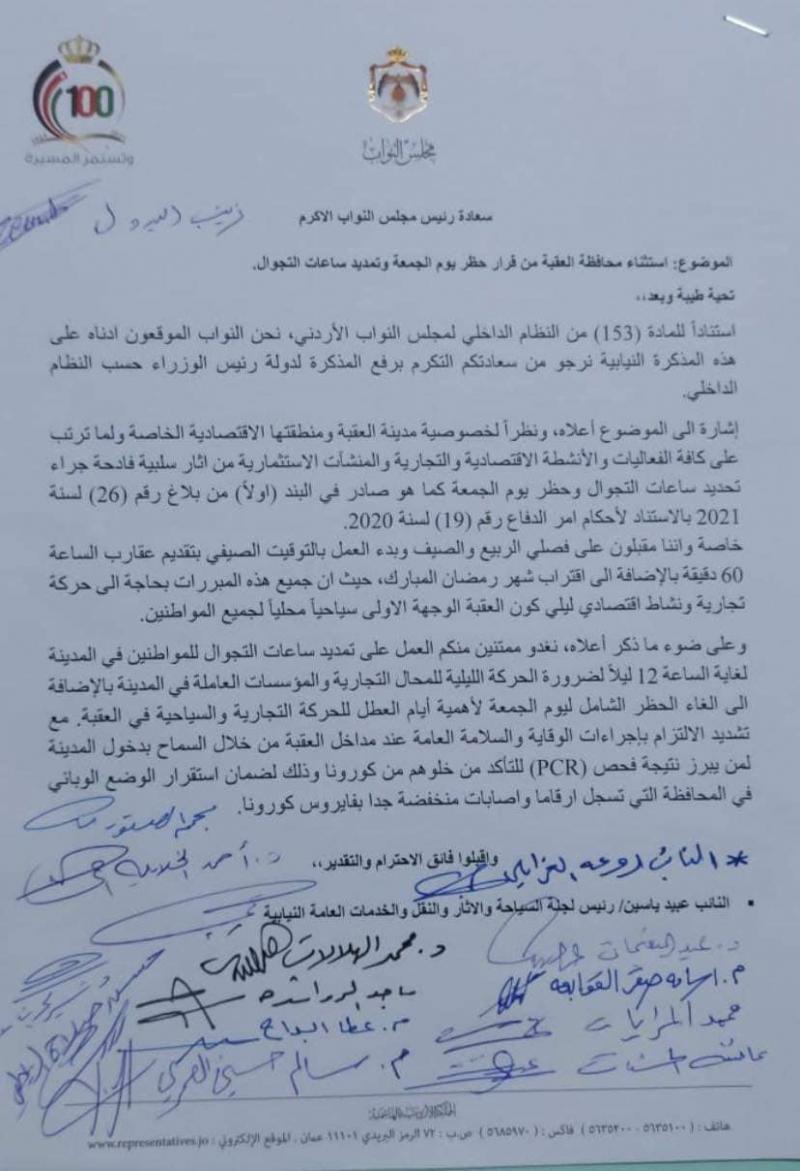 100
وتستمر المسيرة
مجلس النواب
زينب البدول
سعادة رئيس مجلس النواب الاكرم
الموضوع: استثناء محافظة العقبة من قرار حظر يوم الجمعة وتمديد ساعات التجوال.
تحية طيبة وبعد،،
استناداً للمادة (153) من النظام الداخلي لمجلس النواب الأردني، نحن النواب الموقعون ادناه على
هذه المذكرة النيابية نرجو من سعادتكم التكرم برفع المذكرة لدولة رئيس الوزراء حسب النظام
الداخلي.
إشارة الى الموضوع أعلاه، ونظراً لخصوصية مدينة العقبة ومنطقتها الاقتصادية الخاصة ولما ترتب
على كافة الفعاليات والأنشطة الاقتصادية والتجارية والمنشآت الاستثمارية من اثار سلبية فادحة جراء
تحديد ساعات التجوال وحظر يوم الجمعة كما هو صادر في البند (اولاً) من بلاغ رقم (26) لسنة
2021 بالاستناد لأحكام امر الدفاع رقم (19) لسنة 2020.
خاصة واننا مقبلون على فصلي الربيع والصيف وبدء العمل بالتوقيت الصيفي بتقديم عقارب الساعة
60 دقيقة بالإضافة الى اقتراب شهر رمضان المبارك، حيث ان جميع هذه المبررات بحاجة الى حركة
تجارية ونشاط اقتصادي ليلي كون العقبة الوجهة الاولى سياحياً محلياً لجميع المواطنين.
وعلى ضوء ما ذكر أعلاه، نغدو ممتنين منكم العمل على تمديد ساعات التجوال للمواطنين في المدينة
لغاية الساعة 12 ليلاً لضرورة الحركة الليلية للمحال التجارية والمؤسسات العاملة في المدينة بالإضافة
الى الغاء الحظر الشامل ليوم الجمعة لأهمية أيام العطل للحركة التجارية والسياحية في العقبة. مع
تشديد الالتزام بإجراءات الوقاية والسلامة العامة عند مداخل العقبة من خلال السماح بدخول المدينة
لمن يبرز نتيجة فحص (PCR) للتأكد من خلوهم من كورونا وذلك لضمان استقرار الوضع الوبائي
في المحافظة التي تسجل ارقاما واصابات منخفضة جدا بفايروس كورونا.
واقبلوا فائق الاحترام والتقدير،،
* النائب
د. أحمد
• النائب عبيد ياسين/ رئيس لجنة السياحة والاثار والنقل والخدمات العامة النيابية
د. محمد الهلالات
ماجد الرواشدة
م. اسامه صقر القوابعه
محمد المرايات
م. عطا
عائشة الحسنات
م. سالم حسني العمري
هاتف : (٥٦٣٥١٠٠ - ٥٦٣٥٢٠٠) فاكس : (٥٦٨٥٩٧٠) ص.ب : ٧٢ الرمز البريدي ١١١٠١ عمان . الموقع الإلكتروني : www.representatives.jo